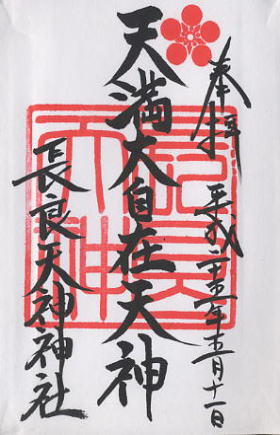 奉拝 平成二十五年五月十一日
天満大自在天神
長良天神神社
長良天神